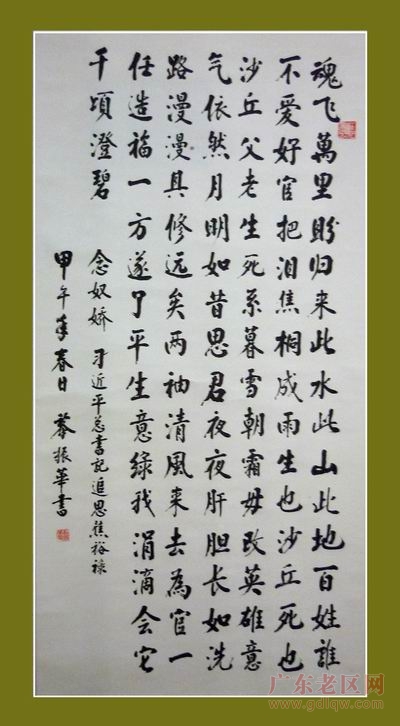 魂飞萬里盼归来此水此山此地百姓誰
不愛好官把泪焦桐成雨生也沙丘死也
沙丘父老生死系暮雪朝霜毋改英雄意
气依然月明如昔思君夜夜肝胆长如洗
路漫漫其修远矣两袖清風来去為官一
任造福一方遂了平生意綠我涓滴会它
千頃澄碧
念奴娇 习近平总書记追思焦裕禄
甲午年春日 蔡振華書
广东老区网
www.gdlqw.com